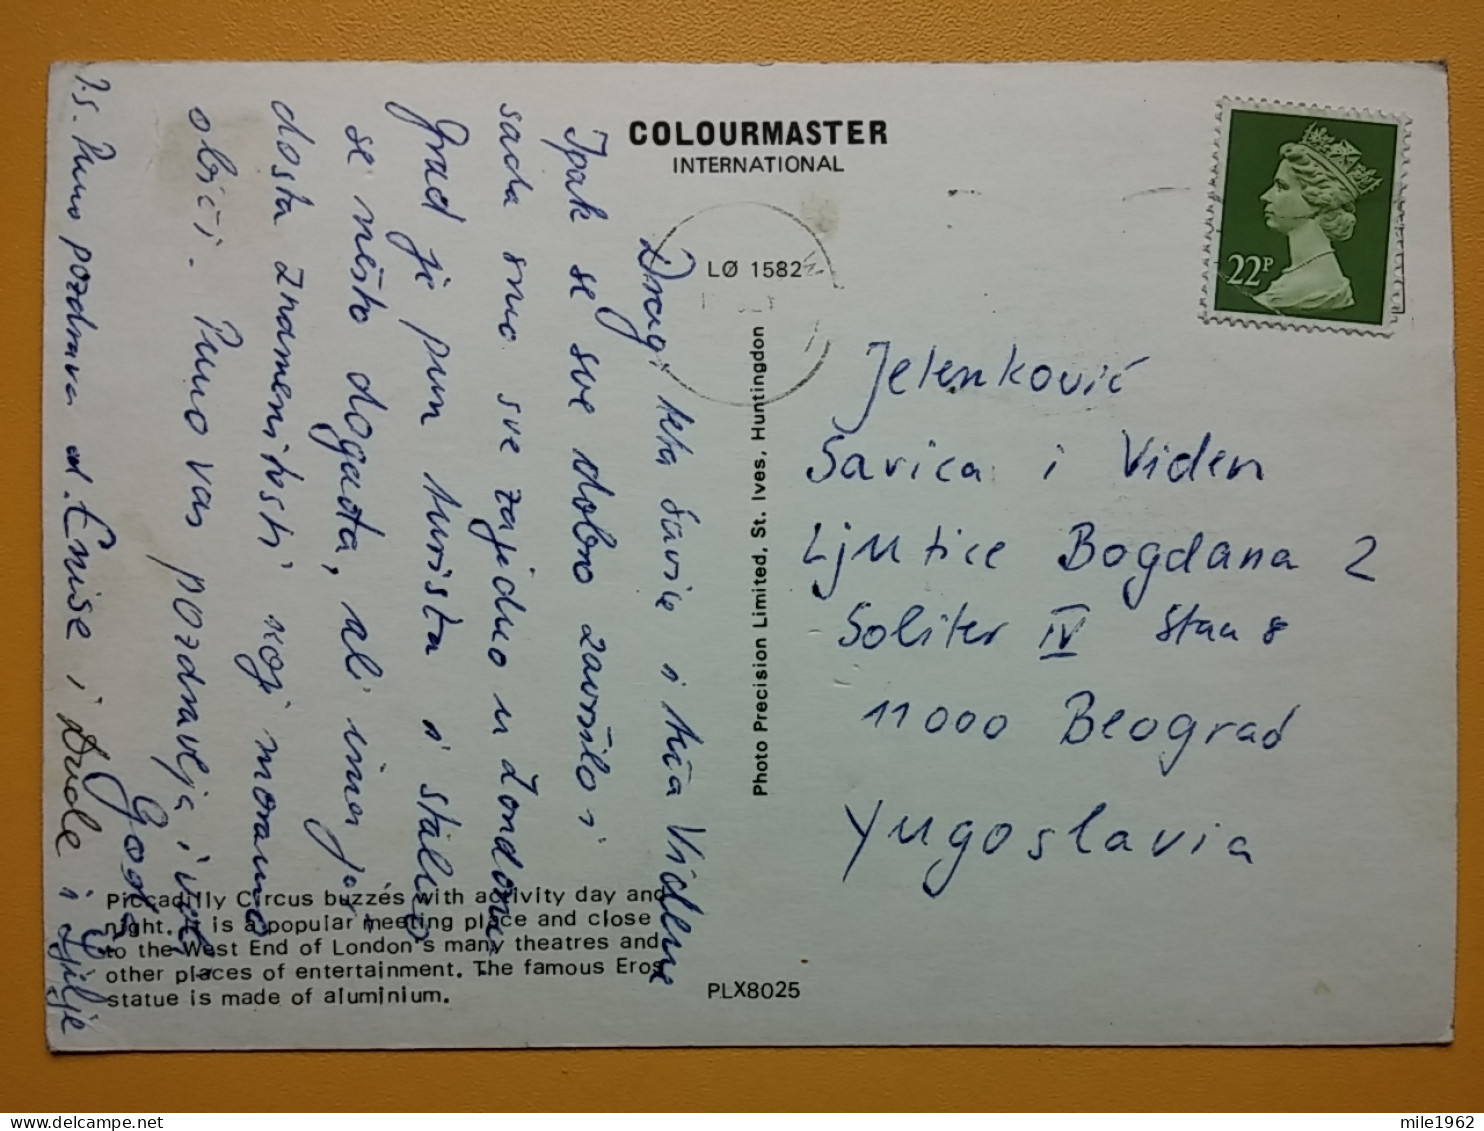 COLOURMASTER
INTERNATIONAL
LØ 1582
22P
Dragi teta Savice i kića Videne
Ipak se sve dobro završilo i
sada smo sve zajedno u Londonu
Grad je pun turista i stalno
se nešto dogaɗa, ali imaj još
dosta znamenitosti koji moramo
obići. Puno vas pozdravlja i voli
Goda
P.S. Puno pozdrava od Enise i Dude i Ljilje
Jelenković
Savica i Viden
Ljutice Bogdana 2
Soliter IV Stan 8
11000 Beograd
Yugoslavia
Photo Precision Limited, St. Ives, Huntingdon
Piccadilly Circus buzzes with activity day and
night. It is a popular meeting place and close
to the West End of London's many theatres and
other places of entertainment. The famous Eros
statue is made of aluminium.
PLX8025
mile1962